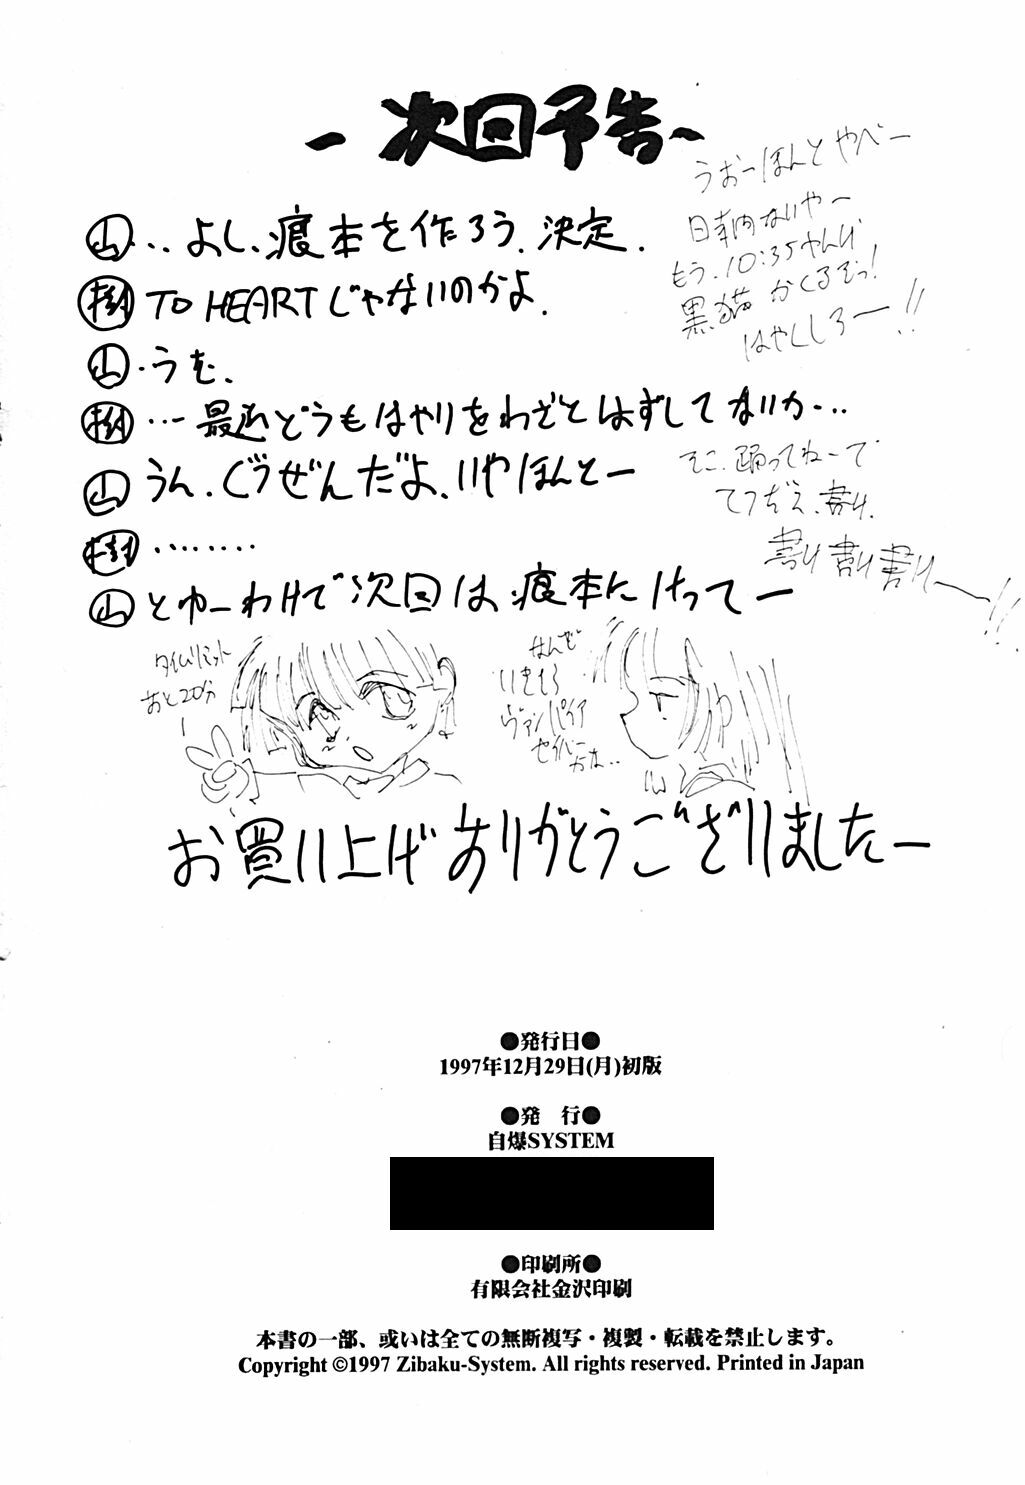 －次回予告～
山 ‥よし、痕本を作ろう。決定。
樹 TO HEARTじゃないのかよ。
山 ・うむ。
樹 …最近どうもはやりをわざとはずしてないか…
山 うん。ぐうぜんだよ、いやほんとー
樹 ………
山 とゆーわけで次回は痕本にけってー
うおーほんとやべー
ないやー
もう、10:35やんけ
黒猫 かくるぞっ!
はやくしろー!!
そこ、踊ってねーで
てつだえ、書け、
書け 書け 書けー!!
タイムリミット
あと20分
なんで
いきもう
ヴァンパイア
セイバー
かな‥
お買い上げありがとうございましたー
●発行日●
1997年12月29日(月)初版
●発　行●
自爆SYSTEM
●印刷所●
有限会社金沢印刷
本書の一部、或いは全ての無断複写・複製・転載を禁止します。
Copyright ©1997 Zibaku-System. All rights reserved. Printed in Japan